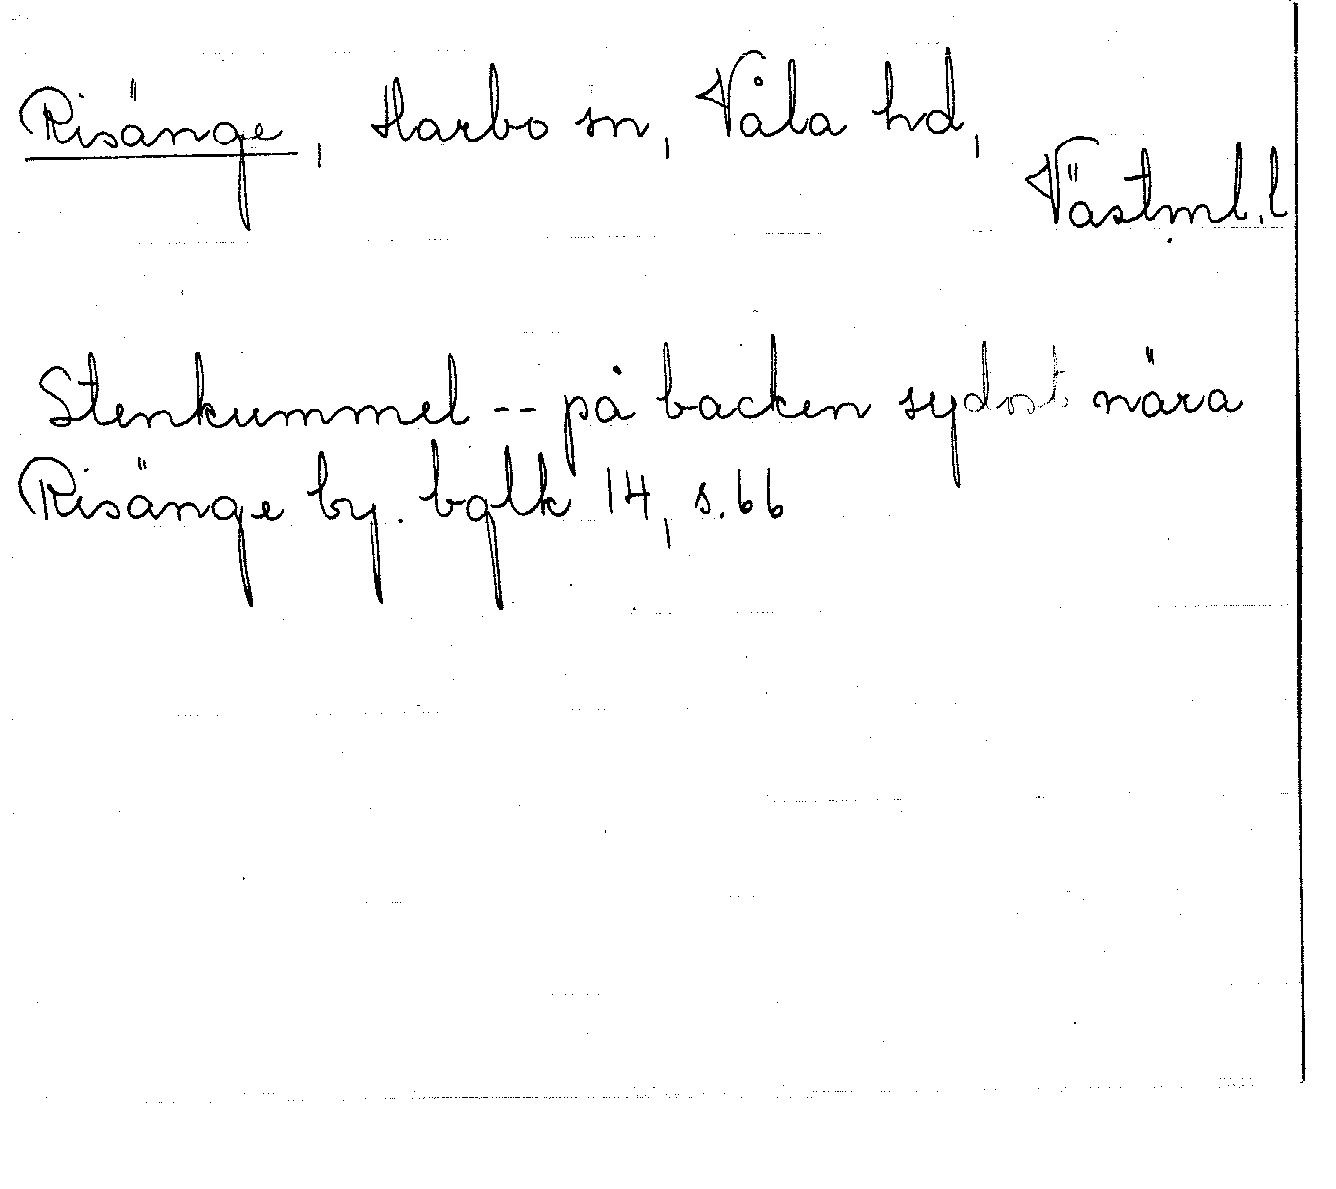 Risänge, Harbo sn, Våla hd,
Västml. l
Stenkummel -- på backen sydost nära
Risänge by. bglk 14, s. 66